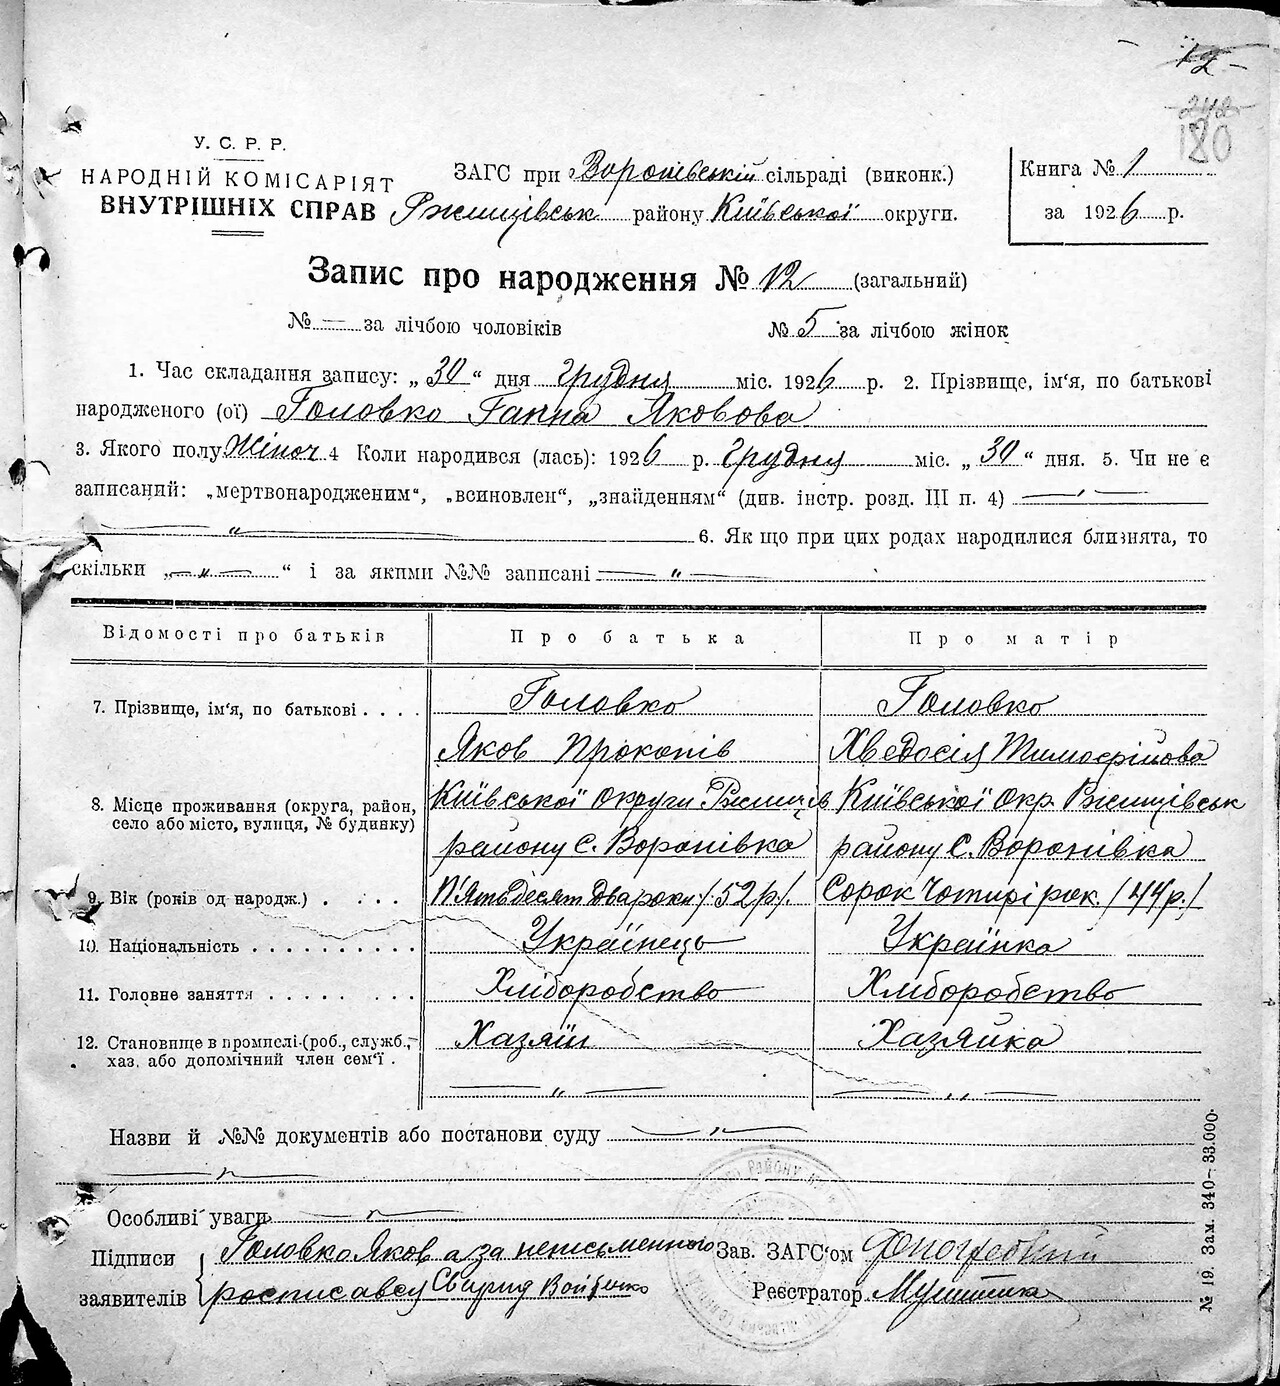 12
242
180
У. С. Р. Р.
НАРОДНІЙ КОМІСАРІЯТ
ВНУТРІШНІХ СПРАВ
ЗАГС при Воронівській сільраді (виконк.)
Ржищівськ району Київської округи.
Книга № 1
за 1926 р.
Запис про народження № 12 (загальний)
№ — за лічбою чоловіків № 5 за лічбою жінок
1. Час складання запису: „30“ дня Грудня міс. 1926 р. 2. Прізвище, ім'я, по батькові
народженого (ої) Головко Ганна Яковова
3. Якого полу Жіноч 4 Коли народився (лась): 1926 р. Грудня міс. „30“ дня. 5. Чи не є
записаний: „мертвонародженим“, „всиновлен“, „знайденням“ (див. інстр. розд. III п. 4) — „ —
— „ — 6. Як що при цих родах народилися близнята, то
скільки „— „ —“ і за якими №№ записані — „ —
Відомості про батьків Про батька Про матір
7. Прізвище, ім'я, по батькові . . . . Головко Головко
Яков Прокопів Хведосія Тимофійова
8. Місце проживання (округа, район, Київської округи Ржищів Київської Окр. Ржищівськ
село або місто, вулиця, № будинку) району С. Воронівка району С. Воронівка
9. Вік (років од народж.) . . . . П'ятьдесят два роки /52 р/. Сорок Чотирі рок. /44 р./
10. Національність . . . . . . . . . . . Українець Українка
11. Головне заняття . . . . . . . . . Хліборобство Хліборобство
12. Становище в промислі (роб., службе., Хазяїн Хазяйка
хаз. або допомічний член сем'ї . — „ — — „ —
Назви й №№ документів або постанови суду — „ —
— „ —
Особливі уваги — „ —
Підписи Головко Яков а за неписьменного Зав. ЗАГС'ом
заявителів росписавсу Свирид Войтенко Реєстратор
№ 19. Зам. 340—33.000.